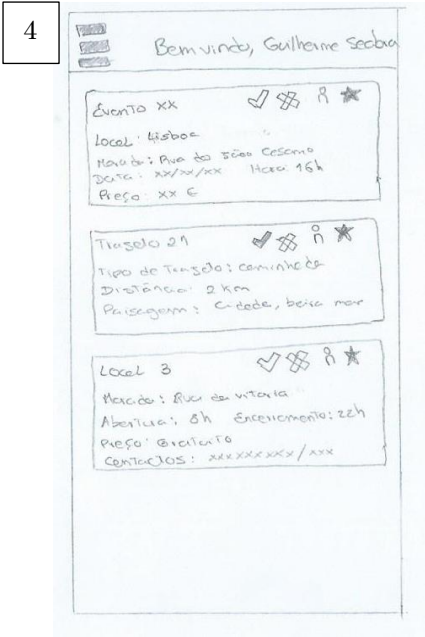 4
Bem vindo, Guilherme Seabra
Evento XX
Local: Lisboa
Morada: Rua do João Cesamo
Data: xx/xx/xx Hora: 16h
Preço: xx €
Trajeto 21
Tipo de Trajeto: caminhada
Distância: 2 Km
Paisagem: Cidade, beira mar
Local 3
Morada: Rua da vitoria
Abertura: 8h Encerramento: 22h
Preço: Gratuito
Contactos: xxxxxxxxx/xxx